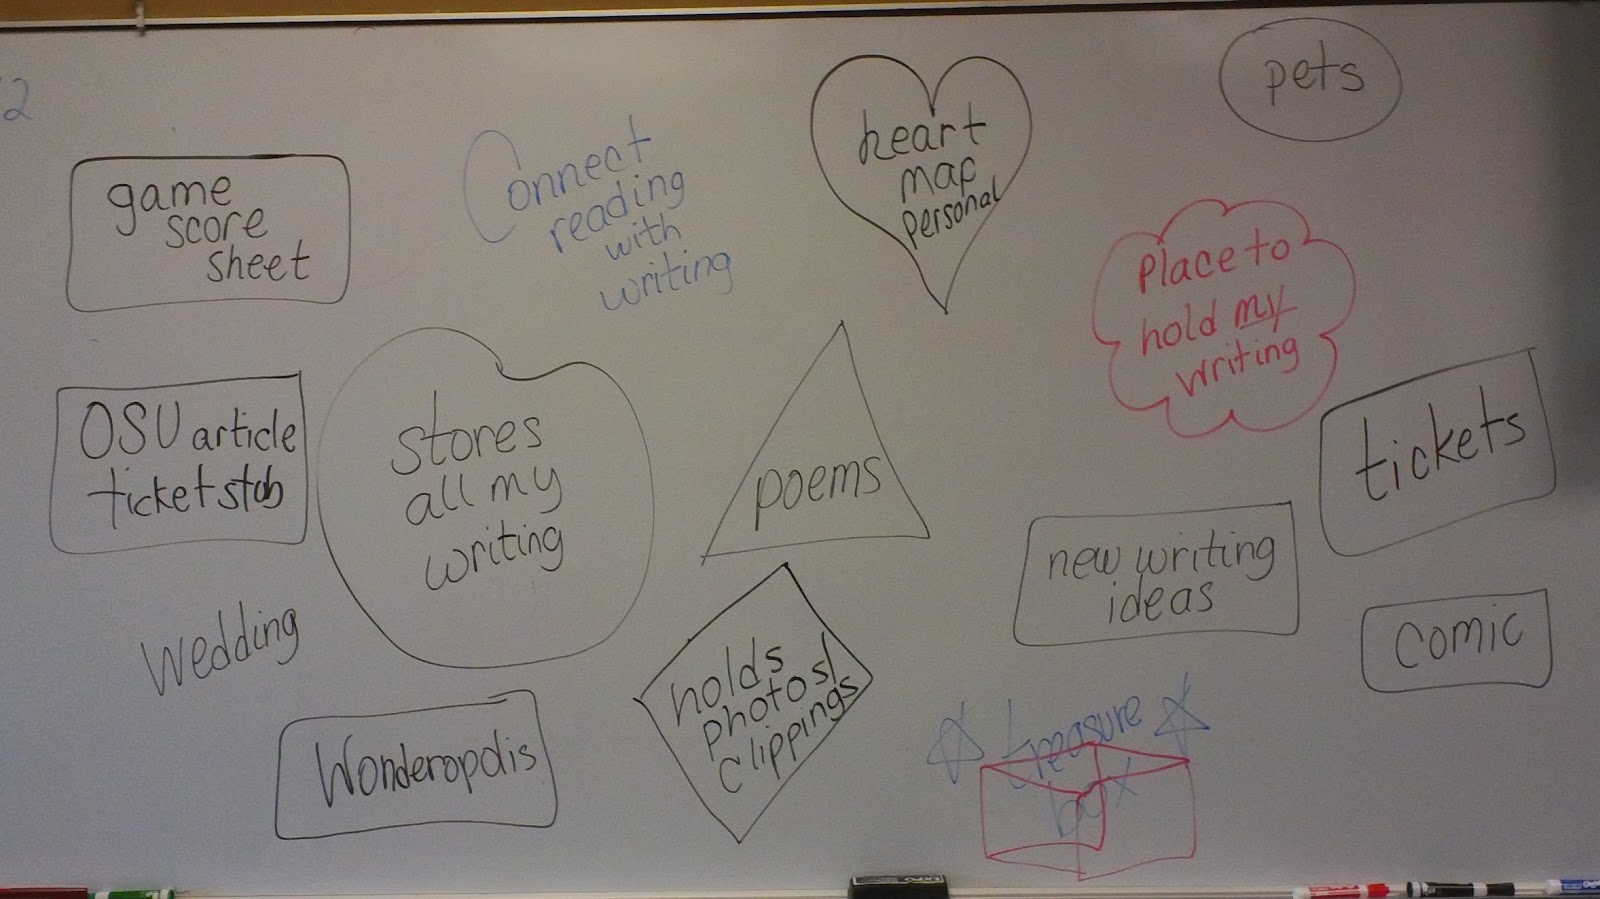 2
game
score
sheet
Connect
reading
with
writing
heart
map
personal
pets
Place to
hold my
writing
OSU article
ticket stub
stores
all my
writing
poems
tickets
new writing
ideas
comic
wedding
Wonderopolis
holds
photos/
clippings
treasure
box
EXPO